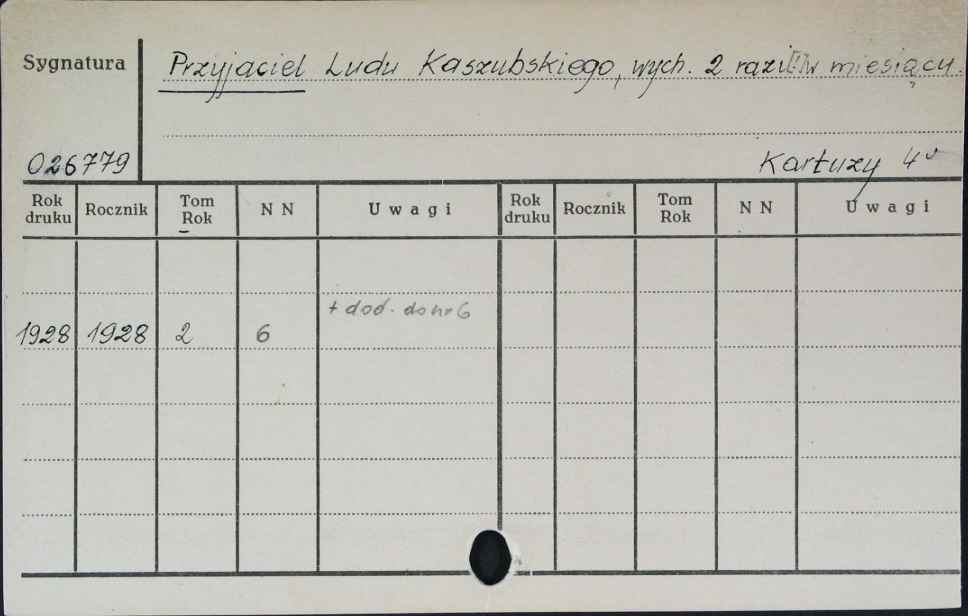 Sygnatura
Przyjaciel Ludu Kaszubskiego, wych. 2 razi w miesiącu.
026779
Kartuzy 4°
Rok druku Rocznik Tom Rok N N Uwagi Rok druku Rocznik Tom Rok N N Uwagi
+ dod. do nr 6
1928 1928 2 6